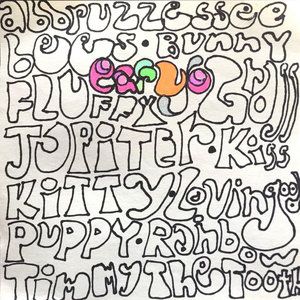 abbruzzessee
bees · Bunny
FLUFFY
JUPITER · Kiss
KITTY · Loving
PUPPY · Rainbow
Timmy the Tooth